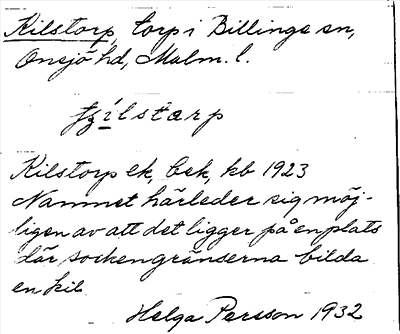 Kilstorp, torp i Billinge sn,
Onsjö hd, Malm. l.
tʒilstorp
Kilstorp ek, bek, kb 1923
Namnet härleder sig möj-
ligen av att det ligger på en plats
där sockengränserna bilda
en kil.
Helga Persson 1932